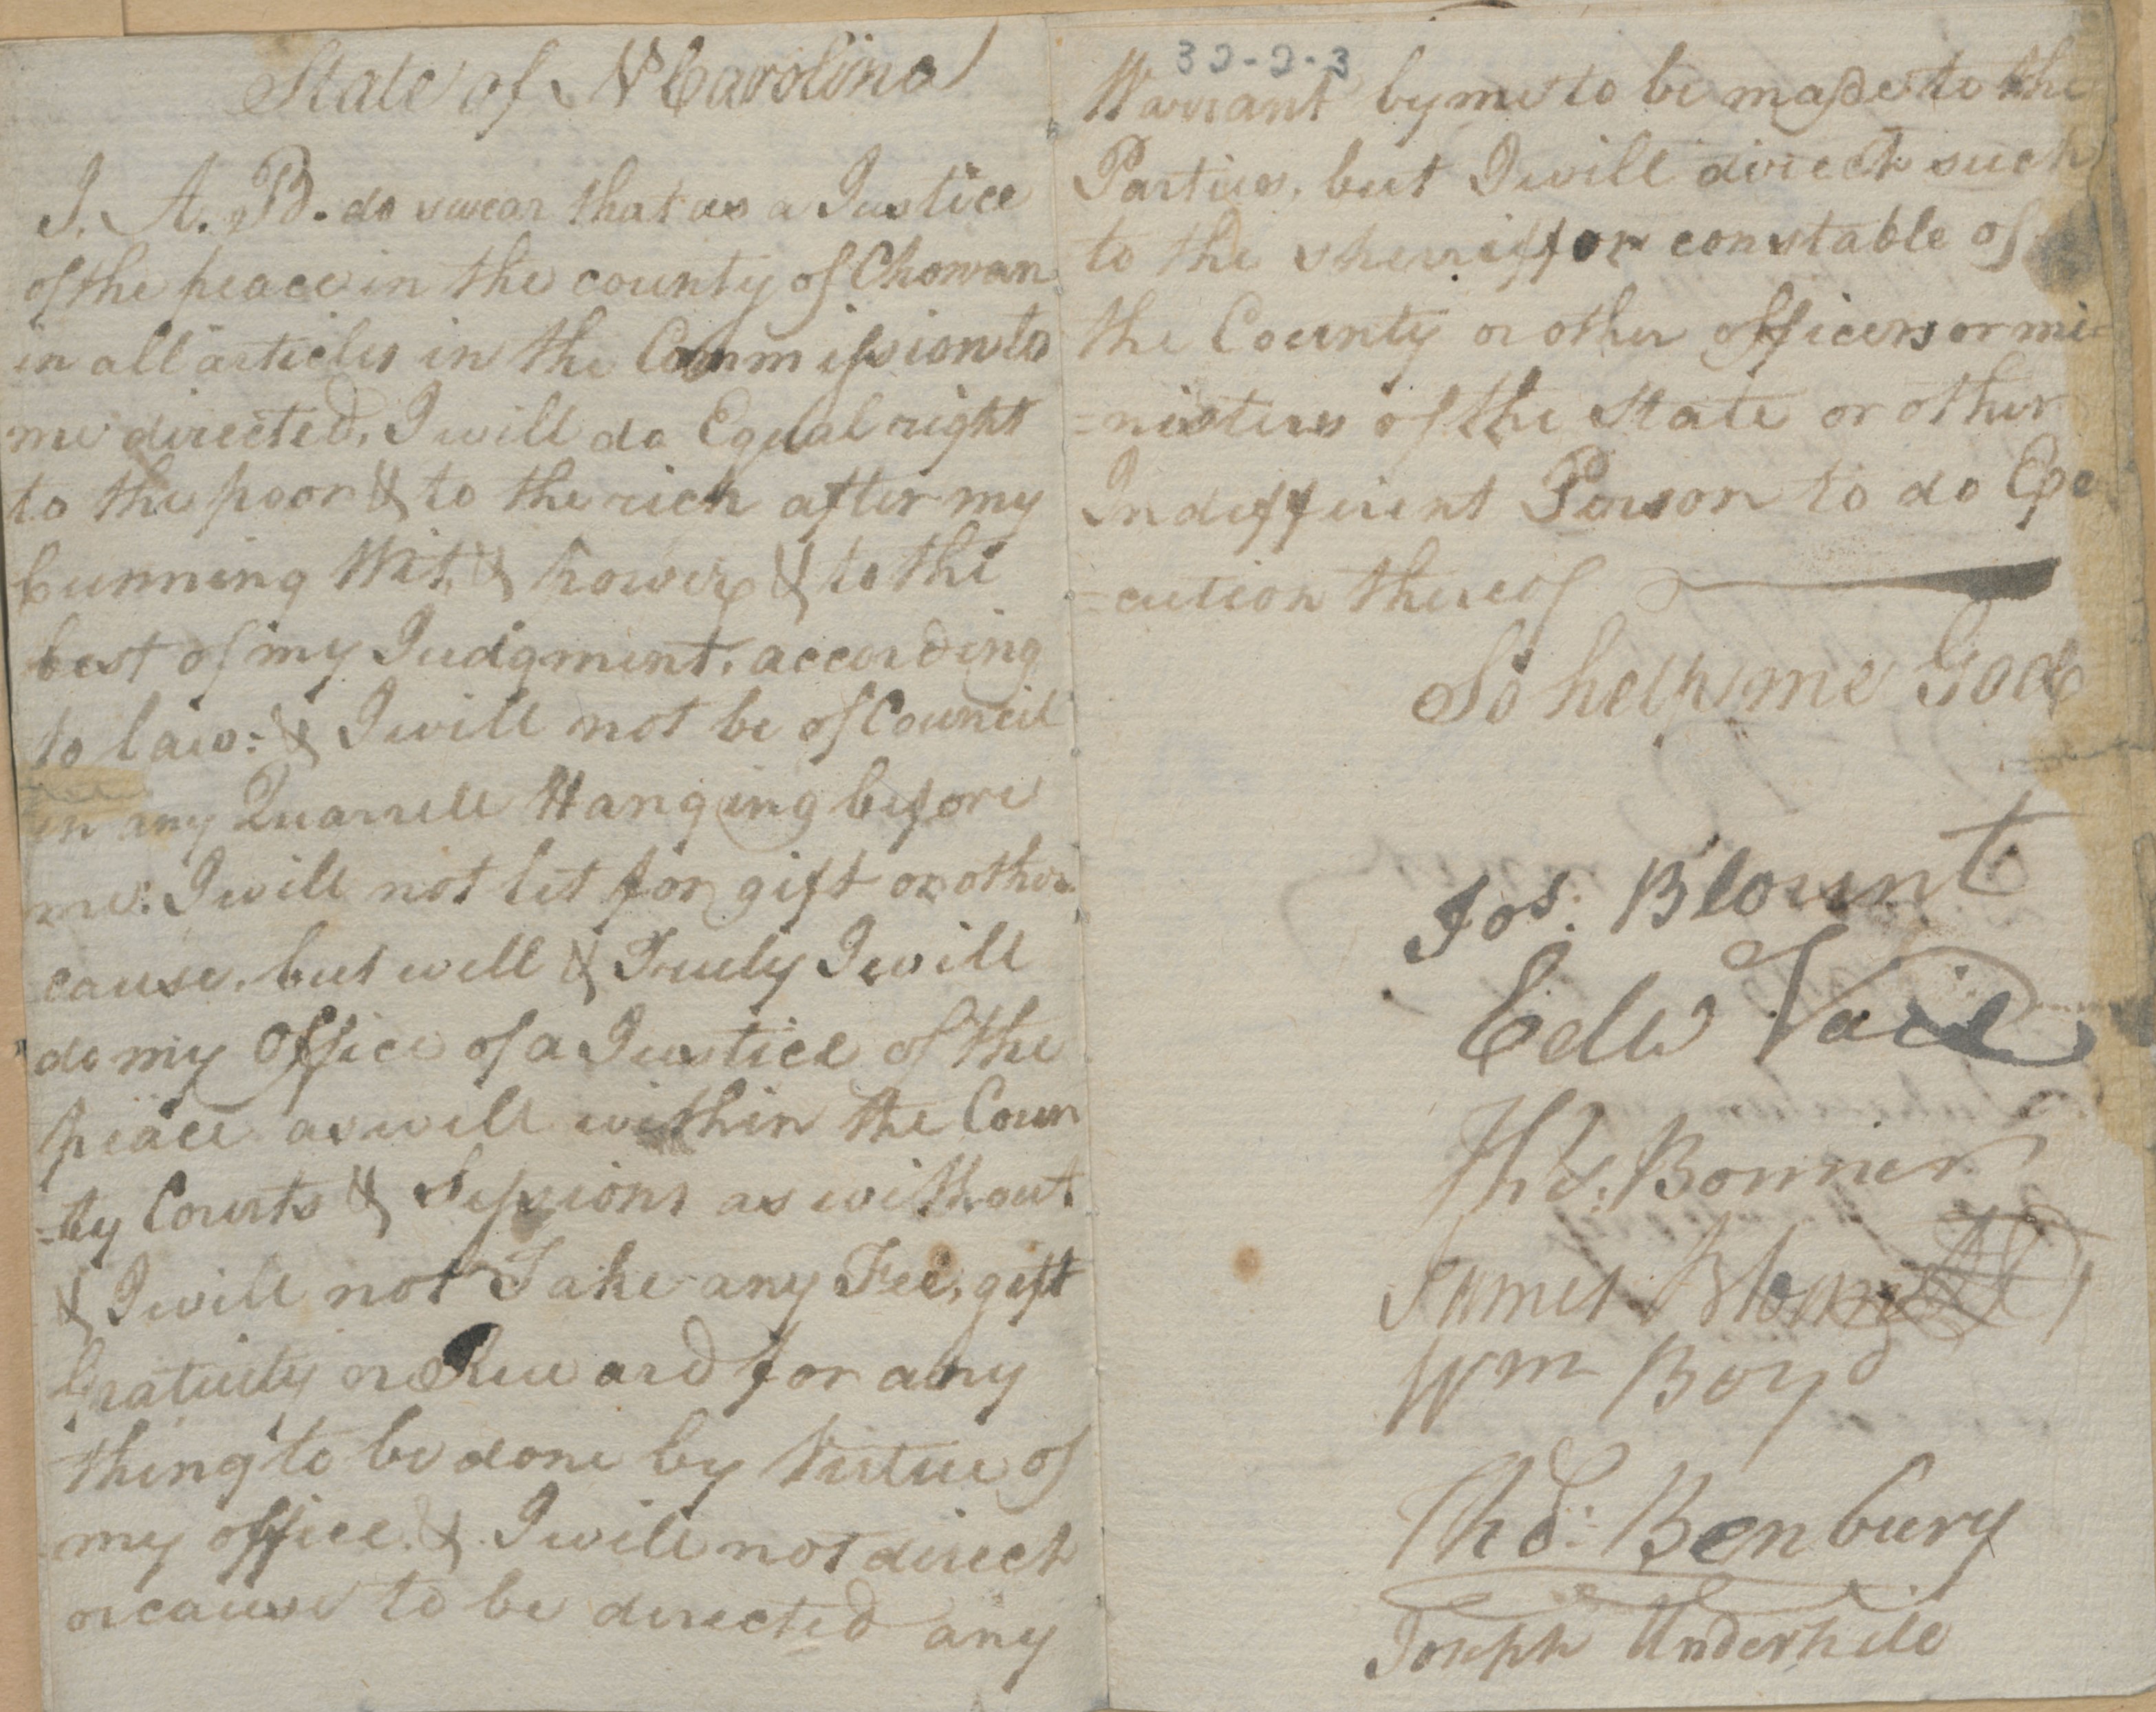 State of N Carolina
I. A. B. do swear that as a Justice
of the peace in the county of Chowan
in all articles in the Commission to
me directed, I will do Equal right
to the poor & to the rich after my
Cunning Wit, & power & to the
best of my Judgment, according
to law: & I will not be of Council
in any Quarrell Hanging before
me: I will not let for gift or other
cause, but well & Truly I will
do my Office of a Justice of the
peace as well within the Coun
-ty Courts & Sessions as without
& I will not Take any Fee, gift
Gratuity or Reward for any
thing to be done by Virtue of
my office, & I will not direct
or cause to be directed any
32-2-3
Warrant by me to be made to the
Parties, but I will direct such
to the sherriff or constable of
the County or other officers or mi=
=nisters of the State or other
Indifferent Person to do Exe
=cution thereof
So help me God
Jos: Blount
Edw Vail
Thos. Bonner
James Blount
Wm Boyd
Thos: Benbury
Joseph Underhill